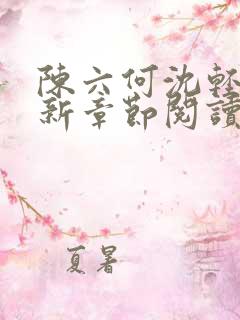 陳六何沈輕
新章節閱讀
夏暑